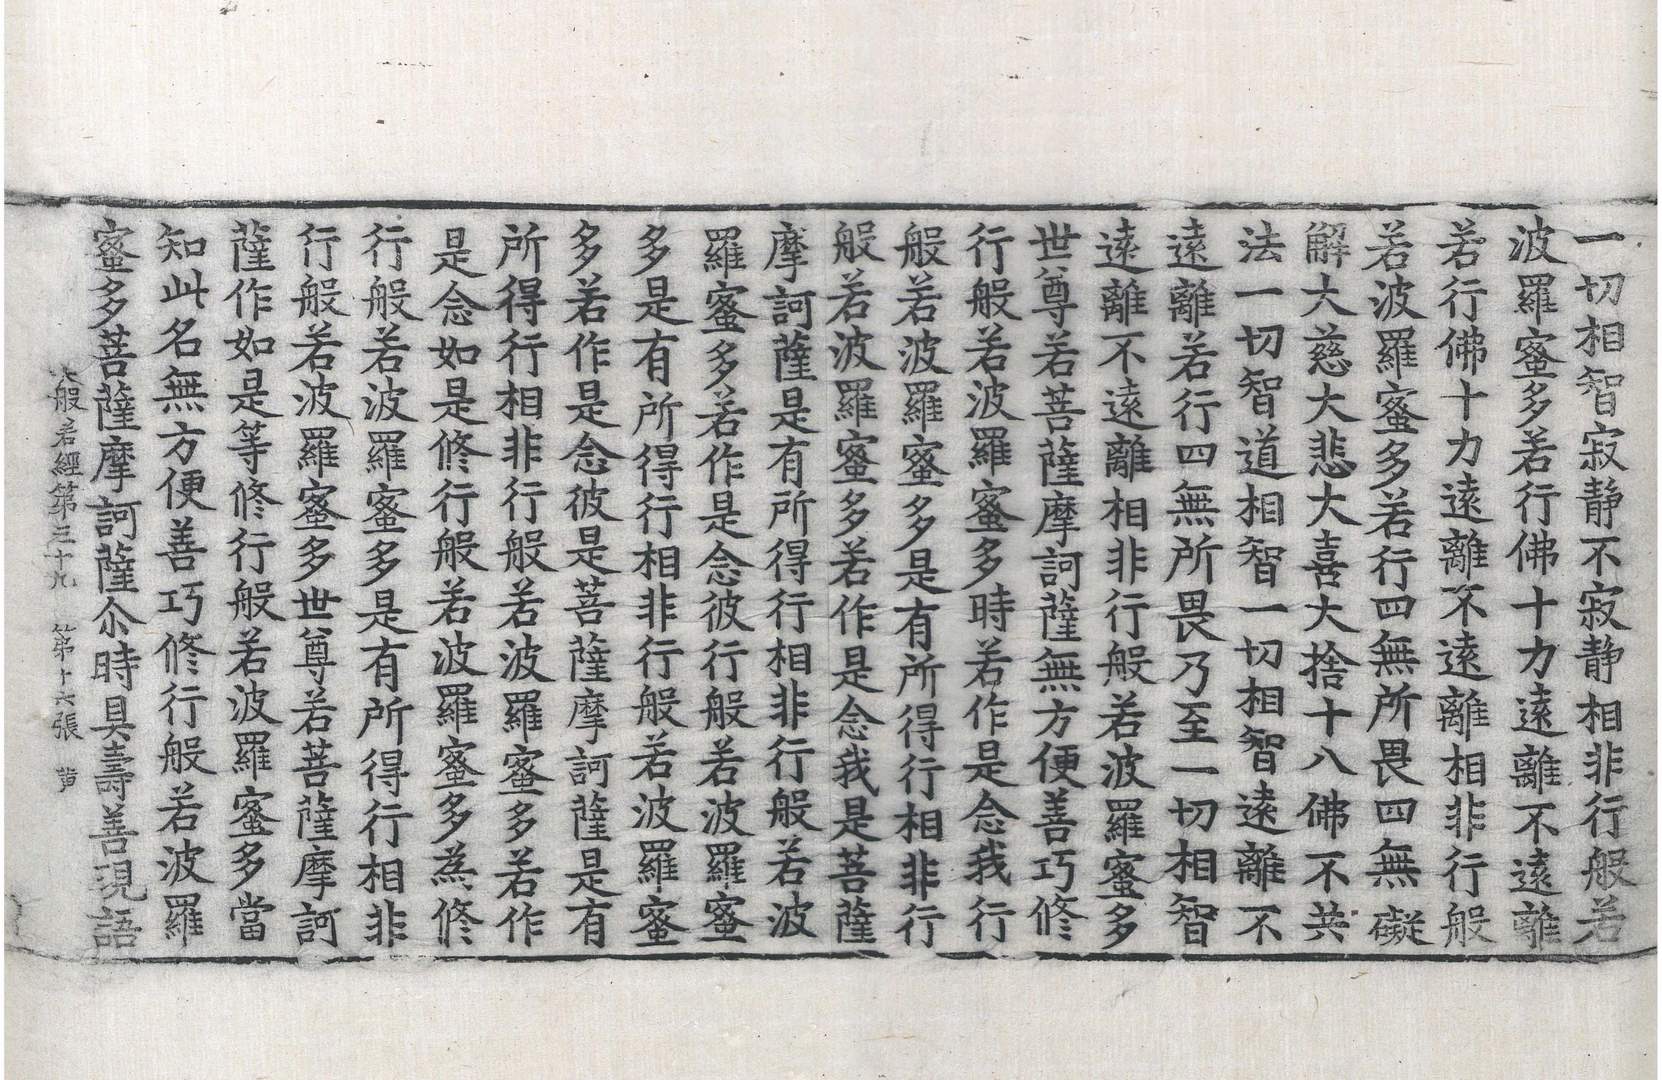 一切相智寂靜不寂靜相非行般若
波羅蜜多若行佛十力遠離不遠離
若行佛十力遠離不遠離相非行般
若波羅蜜多若行四無所畏四無礙
解大慈大悲大喜大捨十八佛不共
法一切智道相智一切相智遠離不
遠離若行四無所畏乃至一切相智
遠離不遠離相非行般若波羅蜜多
世尊若菩薩摩訶薩無方便善巧修
行般若波羅蜜多時若作是念我行
般若波羅蜜多是有所得行相非行
般若波羅蜜多若作是念我是菩薩
摩訶薩是有所得行相非行般若波
羅蜜多若作是念彼行般若波羅蜜
多是有所得行相非行般若波羅蜜
多若作是念彼是菩薩摩訶薩是有
所得行相非行般若波羅蜜多若作
是念如是修行般若波羅蜜多為修
行般若波羅蜜多是有所得行相非
行般若波羅蜜多世尊若菩薩摩訶
薩作如是等修行般若波羅蜜多當
知此名無方便善巧修行般若波羅
蜜多菩薩摩訶薩尒時具壽善現語
大般若經第三十九 第十六張